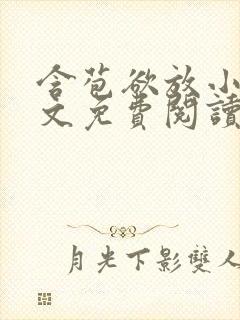 含苞欲放小
文免費閱讀
月光下影雙人